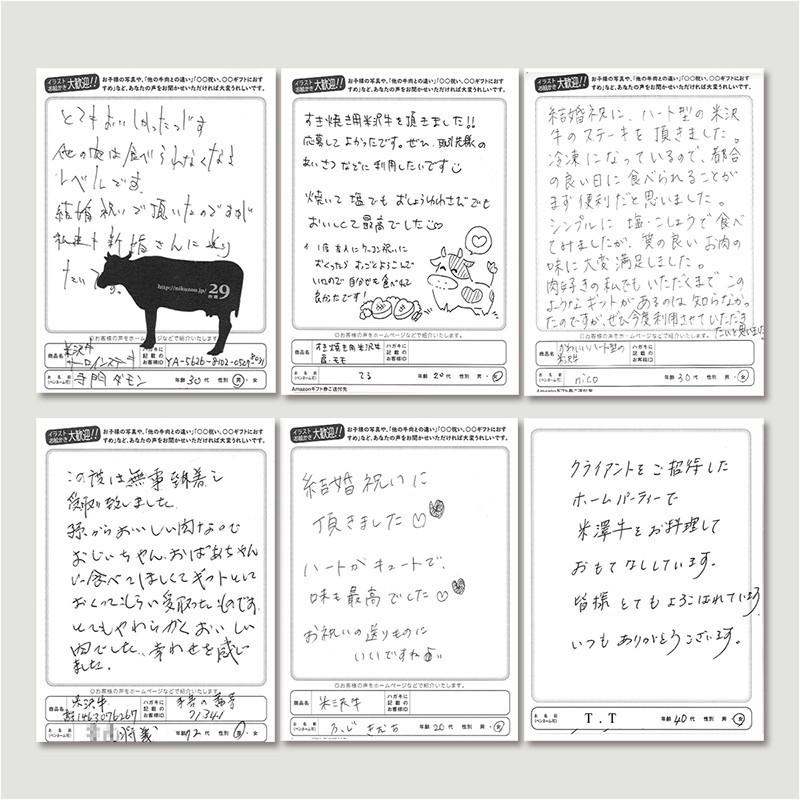 イラストお絵かき大歓迎!! お子様の写真や、「他の牛肉との違い」「〇〇祝い、〇〇ギフトにおす
すめ」など、あなたの声をお聞かせいただければ大変うれしいです。
とてもおいしかったです
他の肉は食べられなくなる
レベルです。
結婚祝いで頂いたのですが
私達も新婚さんに送り
たいです。
http://nikuzou.jp/ 29
◎お客様の声をホームページなどで紹介いたします。
商品名 米沢牛
サーロインステーキ
ハガキに記載のお客様ID
お名前(ペンネーム可) 寺門ダモン 年齢 30代 性別 男・女
イラストお絵かき大歓迎!! お子様の写真や、「他の牛肉との違い」「〇〇祝い、〇〇ギフトにおす
すめ」など、あなたの声をお聞かせいただければ大変うれしいです。
すき焼き用米沢牛を頂きました!!
応募してよかったです。ぜひ、取引先様の
あいさつなどに利用したいです
焼いて塩でもおしょうゆわさびでも
おいしくて最高でした
1度友人にケーコン祝いに
おくったらすっごとよろこんで
いたので自分も食べれて
良かたです!
◎お客様の声をホームページなどで紹介いたします。
商品名 すき焼き用米沢牛
肩・モモ
ハガキに記載のお客様ID
お名前(ペンネーム可) てる 年齢 20代 性別 男・女
Amazonギフト券ご送付先
イラストお絵かき大歓迎!! お子様の写真や、「他の牛肉との違い」「〇〇祝い、〇〇ギフトにおす
すめ」など、あなたの声をお聞かせいただければ大変うれしいです。
結婚祝に、ハート型の米沢
牛のステーキを頂きました。
冷凍になっているので、都合
の良い日に食べられることが
まず便利だと思いました。
シンプルに塩・こしょうで食べ
てみましたが、質の良いお肉の
味に大変満足しました。
肉好きの私でもいただくまでこの
ようなギフトがあるのは知らなかっ
たのですが、ぜひ今度利用させていただき
たいと思いました
◎お客様の声をホームページなどで紹介いたします。
商品名 かわいいハート型の
米沢牛
ハガキに記載のお客様ID
お名前(ペンネーム可) nico 年齢 30代 性別 男・女
イラストお絵かき大歓迎!! お子様の写真や、「他の牛肉との違い」「〇〇祝い、〇〇ギフトにおす
すめ」など、あなたの声をお聞かせいただければ大変うれしいです。
この度は無事到着し
受取り致しました。
孫からおいしい肉なので
おじいちゃん、おばあちゃん
に食べてほしくてギフトとして
おくってもらい受取ったものです。
とてもやわらかくおいしい
肉でした。幸わせを感じ
ました。
◎お客様の声をホームページなどで紹介いたします。
商品名 米沢牛
ハガキに記載のお客様ID
71341
お名前(ペンネーム可) 年齢 72代 性別 男・女
イラストお絵かき大歓迎!! お子様の写真や、「他の牛肉との違い」「〇〇祝い、〇〇ギフトにおす
すめ」など、あなたの声をお聞かせいただければ大変うれしいです。
結婚祝いに
頂きました
ハートがキュートで、
味も最高でした
お祝いの送りものに
いいですね
◎お客様の声をホームページなどで紹介いたします。
商品名 米沢牛
ハガキに記載のお客様ID
お名前(ペンネーム可) 年齢 20代 性別 男・女
クライアントをご招待した
ホームパーティーで
米澤牛をお料理して
おもてなししています。
皆様とてもよろこばれています
いつもありがとうございます。
お名前(ペンネーム可) T.T 年齢 40代 性別 男・女